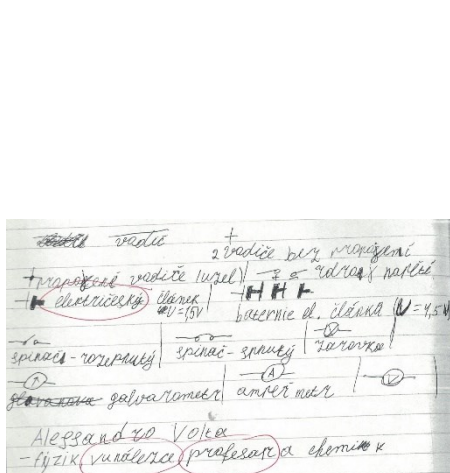 vodič 2 vodiče bez propojení
propojené vodiče (uzel) zdroj napětí
električeský článek U=1,5V
baterie el. článků U=4,5V
spínač-rozepnutý spínač-sepnutý žárovka
galvanometr ampér metr
Alessandro Volta
-fyzik vynálezce profesor a chemik